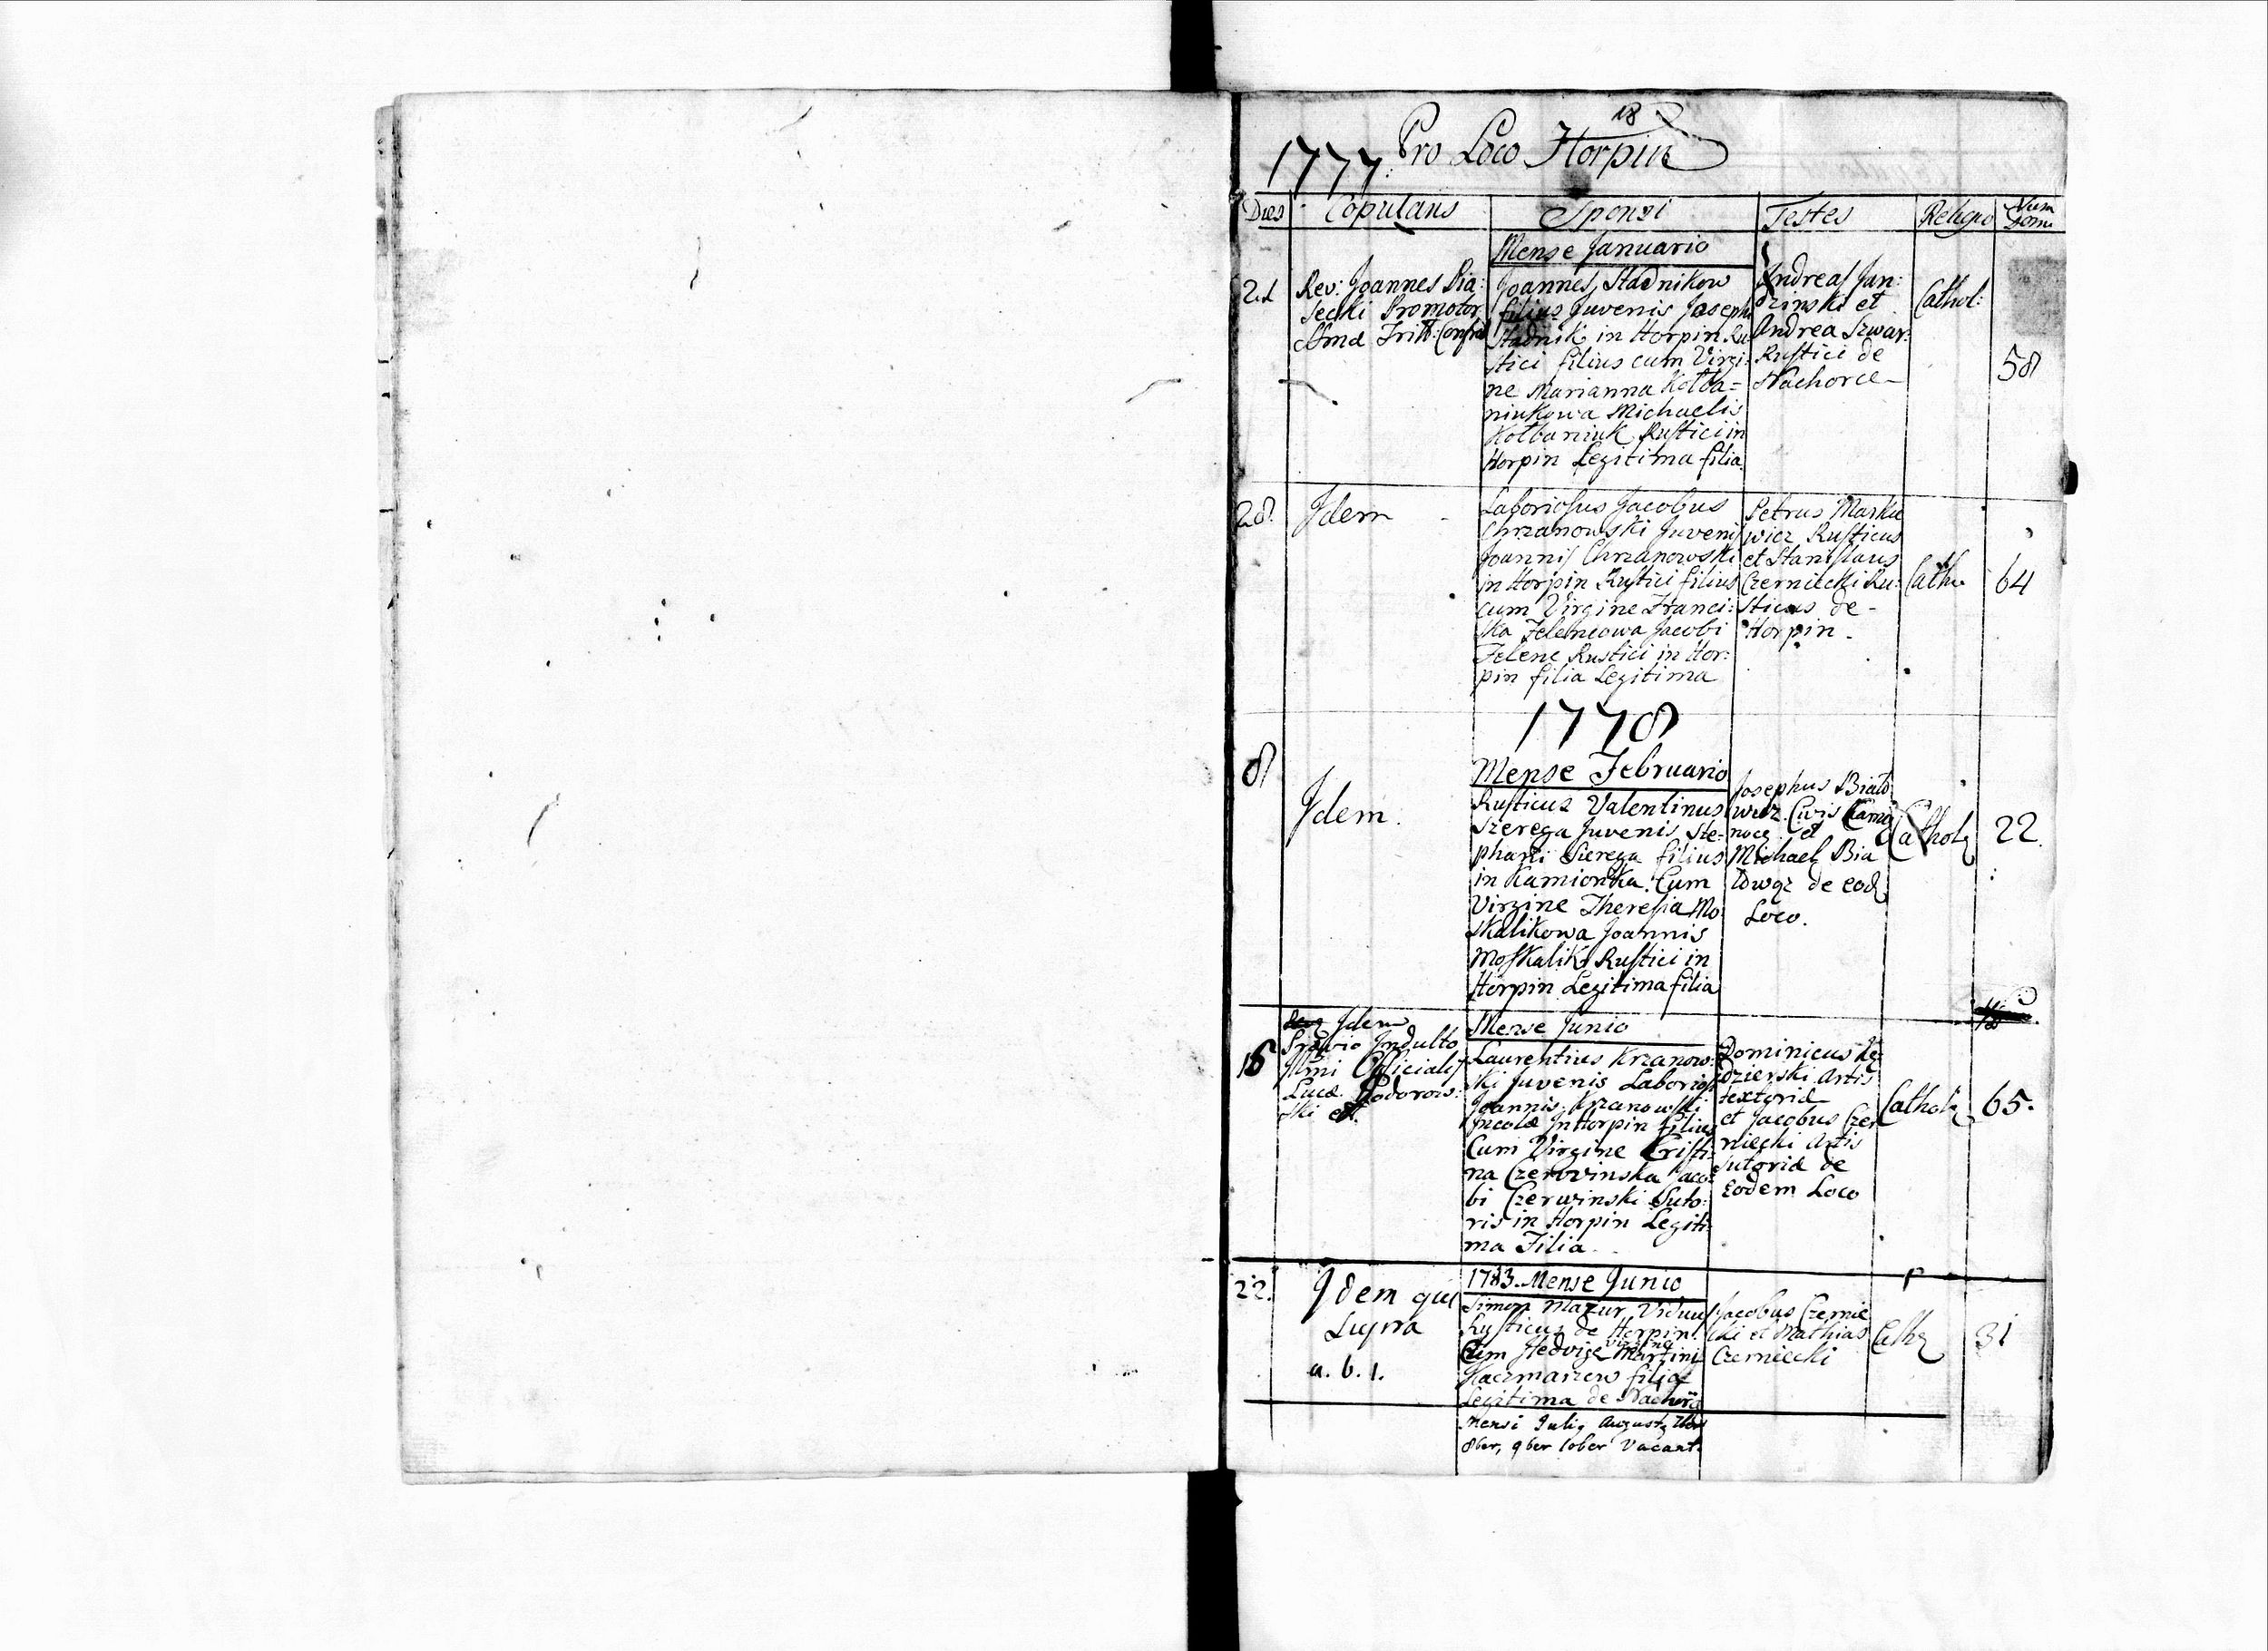 18
1777. Pro Loco Horpin
Dies
Copulans
Sponsi
Testes
Religio
Num
Domi
Mense Januario
21
Rev: Joannes Pia:
secki Promotor
Joannes Stadnikow
filius Juvenis Joseph
Stadnik in Horpin Ru
stici filius cum Virgi:
ne Marianna Kolba=
niukowa Michaelis
Kolbaniuk Rustici in
Horpin Legitima filia.
Andreas Jan:
dzinski et
Andrea Szwar:
Rustici de
Nachorce
Cathol:
58
28.
Idem
Laboriosus Jacobus
Chrzanowski Juvenis
Joannis Chrzanowski
in Horpin Rustici filius
cum Virgine Franci:
ska Zelencowa Jacobi
Zelenc Rustici in Hor:
pin filia Legitima
Petrus Marku
wicz Rusticus
et Stanislaus
Czerniecki Ru:
sticus de
Horpin.
Cath
64
1778
8
Mense Februario
Idem.
Rusticus Valentinus
Szerega Juvenis Ste=
phani Sierega filius
in Kamionka. Cum
Virgine Theresia Mo
skalikowa Joannis
Moskalik Rustici in
Horpin Legitima filia
Josephus Biało
wicz Civis
et
Michael Bia
de eod
Loco.
Cathol
22.
Mense Junio
16
Idem
Prævio Indulto
Illmi Officialis
Lucæ Podorows:
ski et
Laurentius Krzanow:
ski Juvenis Laboriosi
Joannis Krzanowski
Incolæ In Horpin filius
Cum Virgine Cristi=
na Czerwinska Jaco=
bi Czerwinski Suto:
ris in Horpin Legiti=
ma Filia.
Dominicus
dzierski Artis
textoriæ
et Jacobus Czer
niecki Artis
Sutoriæ de
Eodem Loco
Cathol
65.
1783. Mense Junio
22.
Idem qui
Supra
a. b. 1.
Simon Mazur, Viduus
Rusticus de Horpin.
Cum Hedvige Virgine Martini
Kaczmarzow filia
Legitima de
Jacobus Czernie
cki et Mathias
Czerniecki
Cath
31
Mensi Julij Augusti, 7ber
8ber, 9ber 10ber Vacant.